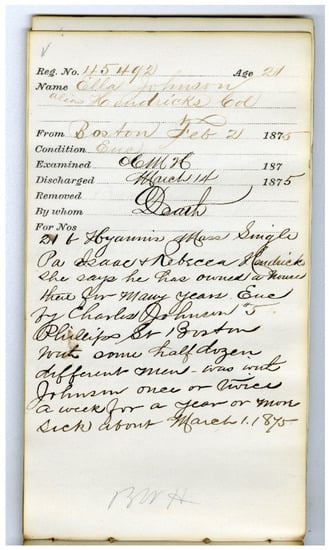 Reg. No. 45492 Age 21
Name Ella Johnson
alias Hendricks Col
From Boston Feb 2 1875
Condition Enc
Examined 187
Discharged March 14 1875
Removed
By whom Death
For Nos
21 b Hyannis Mass Single
Pa Isaac & Rebecca Hendrick
she says he has owned a house
there for many years Enc
by Charles Johnson 5
Phillips St Boston
with some half dozen
different men - was with
Johnson once or twice
a week for a year or mon
sick about March 1. 1875